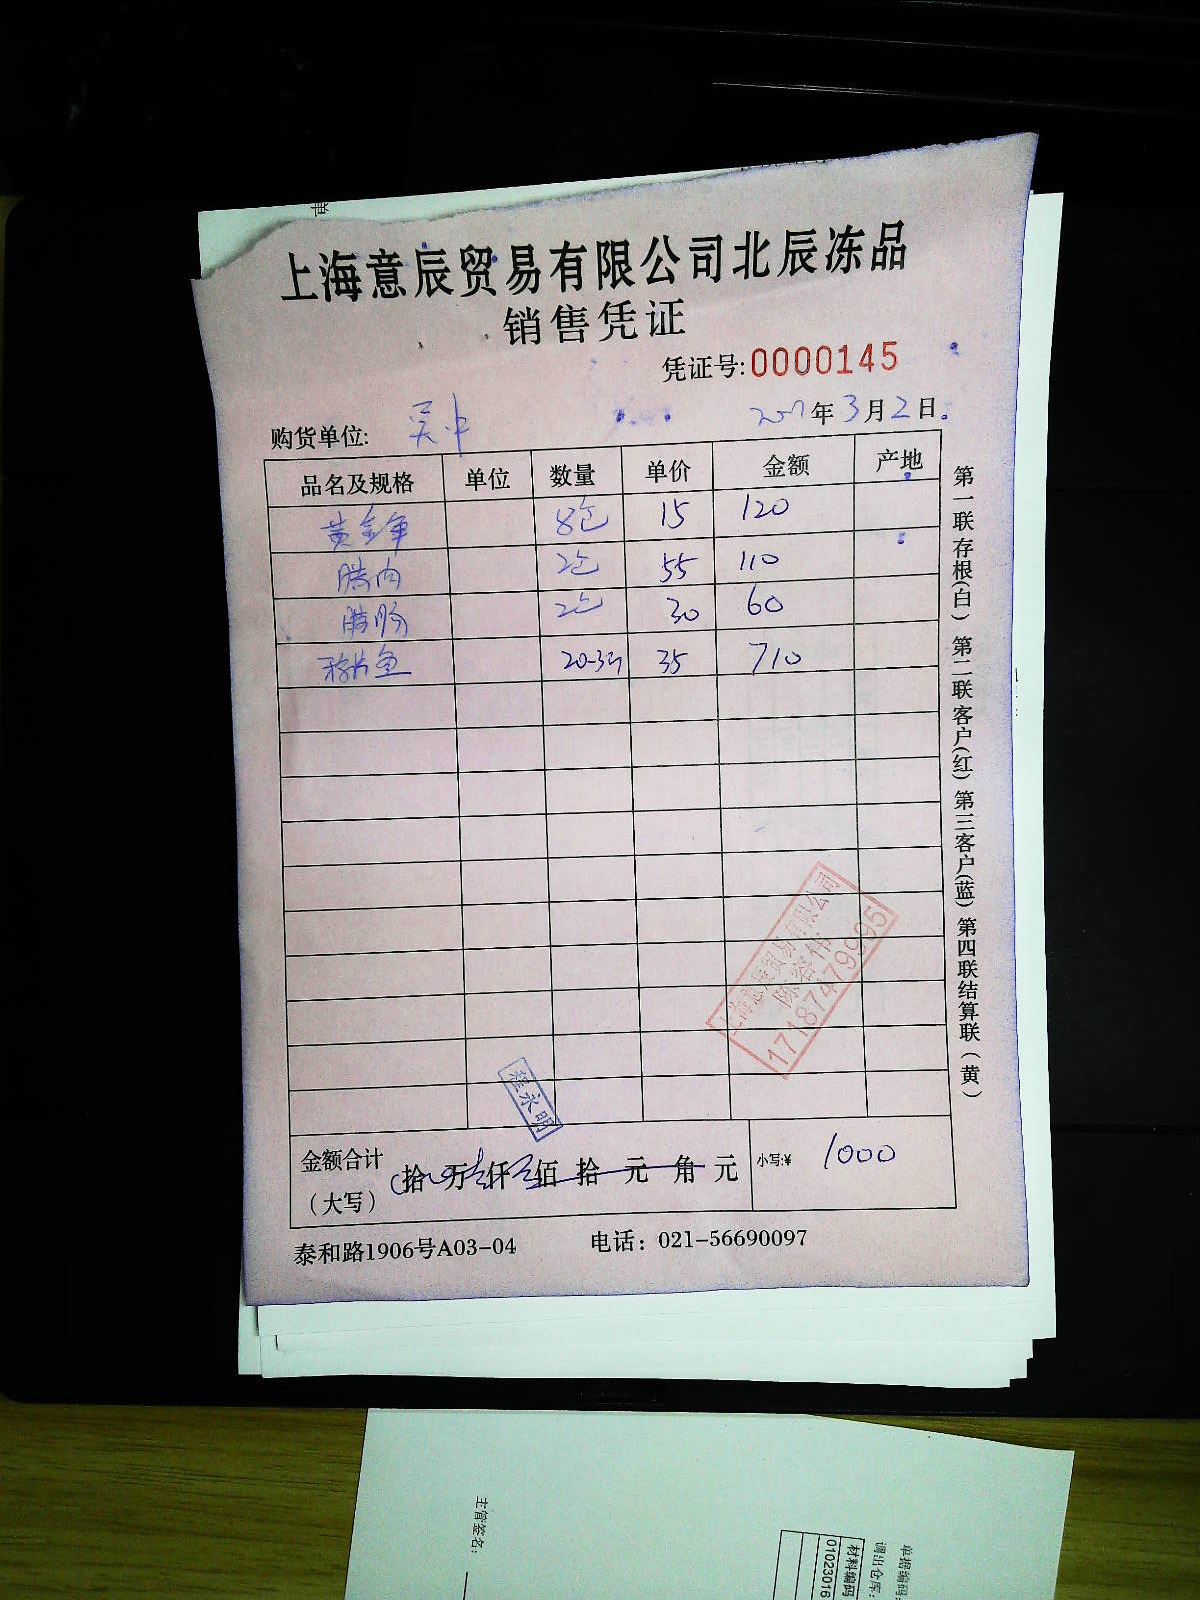 单
上海意辰贸易有限公司北辰冻品
销售凭证
凭证号:0000145
购货单位: 吴中 年3月2日
品名及规格 单位 数量 单价 金额 产地
8包 15 120
腊肉 2包 55 110
腊肠 2包 30 60
鱼 20-3斤 35 710
第一联存根(白) 第二联客户(红) 第三客户(蓝) 第四联结算联(黄)
上海意辰贸易有限公司
17187479995
程永明
金额合计
(大写) 拾 万 仟 佰 拾 元 角 元 小写:¥ 1000
泰和路1906号A03-04 电话: 021-56690097
主管签名:
单据编码:
调出仓库:
材料编码
01023016